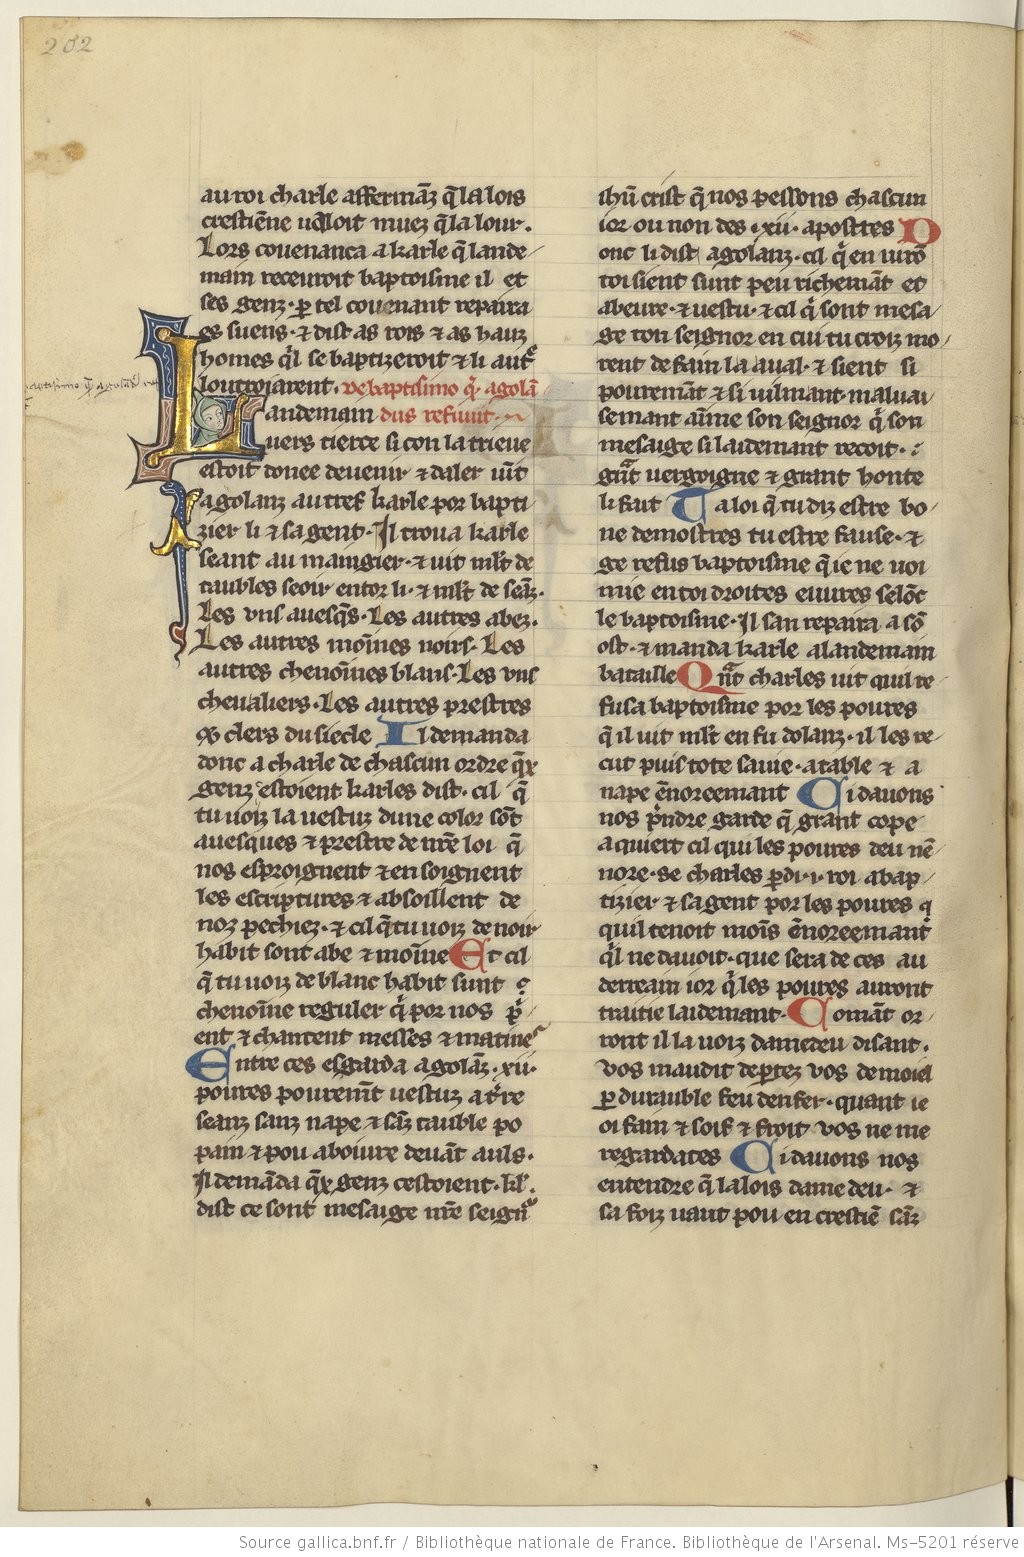 202
au roi charle affermāz q̄ la lois
crestiēne ualoit miez q̄ la lour.
Lors couenanca a karle q̄ lande-
main receuroit baptoisme il et
ses genz. ꝑ tel couenant repaira
es suens. ⁊ dist as rois ⁊ as hauz
homes q̓l se baptizeroit ⁊ li aut̓
loutroiarent. De baptismo q̓ agolā
andemain dus refuuit.
uers tierce si con la trieue
estoit donee de uenir ⁊ daler uīt
agolanz au tref karle por bapti-
zier li ⁊ sa gent. Il troua karle
seant au mangier. ⁊ uit ml̓t de
taubles seoir entor li. ⁊ ml̓t de seāz.
Les vns auesq̄s. Les autres abez.
Les autres moīnes noirs. Les
autres chenoīnes blans. Les vns
cheualiers. Les autres prestres
⁊ clers du siecle Il demanda
donc a charle de chascun ordre q̄x
genz estoient karles dist. cil q̄
tu uoiz la uestuz dune color sōt
auesques ⁊ prestre de nr̄e loi q̄
nos esproignent ⁊ ensoignent
les escriptures ⁊ absoillent de
noz pechiez. ⁊ cil q̄ tu uoiz de noir
habit sont abe ⁊ moīne Et cil
q̄ tu uoiz de blanc habit sunt
chenoīne reguler q̓ por nos p̓i-
ent ⁊ chantent messes ⁊ matines
Entre ces esgarda agolāz .xii.
poures pouremt̄ uestuz a t̓re
seanz sanz nape ⁊ sāz tauble po
pain ⁊ pou a boiure deuāt auls.
Il demāda q̄x genz cestoient. kl̓.
dist ce sont mesaige nr̄e seign̓
ihū crist q̄ nos pessons chascun
ior ou non des .xii. apostres D
onc li dist agolanz. cil q̓ en uirō
toi sient sunt peu richemāt et
abeure. ⁊ uestu. ⁊ cil q̓ sont mesa-
ge ton seignor en cui tu croiz mo-
rent de fain la aual. ⁊ sient si
pouremāt ⁊ si uilmant. maluai-
semant aīme son seignor q̓ son
mesaige si laidemant recoit.
gn̄t uergoigne ⁊ grant honte
li fait Ta loi q̄ tu diz estre bo-
ne demostres tu estre fause. ⁊
ge refus baptoisme q̄ ie ne uoi
mie en toi droites euures selōc
le baptoisme. Il san repaira a sō
ost. ⁊ manda karle a landemain
bataille Qn̄t charles uit quil re-
fusa baptoisme por les poures
q̄ il uit ml̓t en fu dolanz. il les re-
cut puis tote sa uie. a table ⁊ a
nape ēnoreemant Ci dauons
nos p̄ndre garde q̄ grant cope
aquiert cil qui les poures deu nē-
nore. se charles ꝑdi .i. roi a bap-
tizier ⁊ sa gent por les poures q
quil tenoit moīs ēnoreemant
q̓l ne dauoit. que sera de ces au
derreain ior q̓ les poures auront
traitie laidemant. Comāt or-
ront il la uoiz damedeu disant.
vos maudit deꝑtez vos de moi el
ꝑdurauble feu denfer. quant ie
oi fain ⁊ soif ⁊ froit vos ne me
regardates Ci dauons nos
entendre q̄ la lois dame deu. ⁊
sa foiz uaut pou en crestiē sāz
Source gallica.bnf.fr / Bibliothèque nationale de France. Bibliothèque de l'Arsenal. Ms-5201 réserve